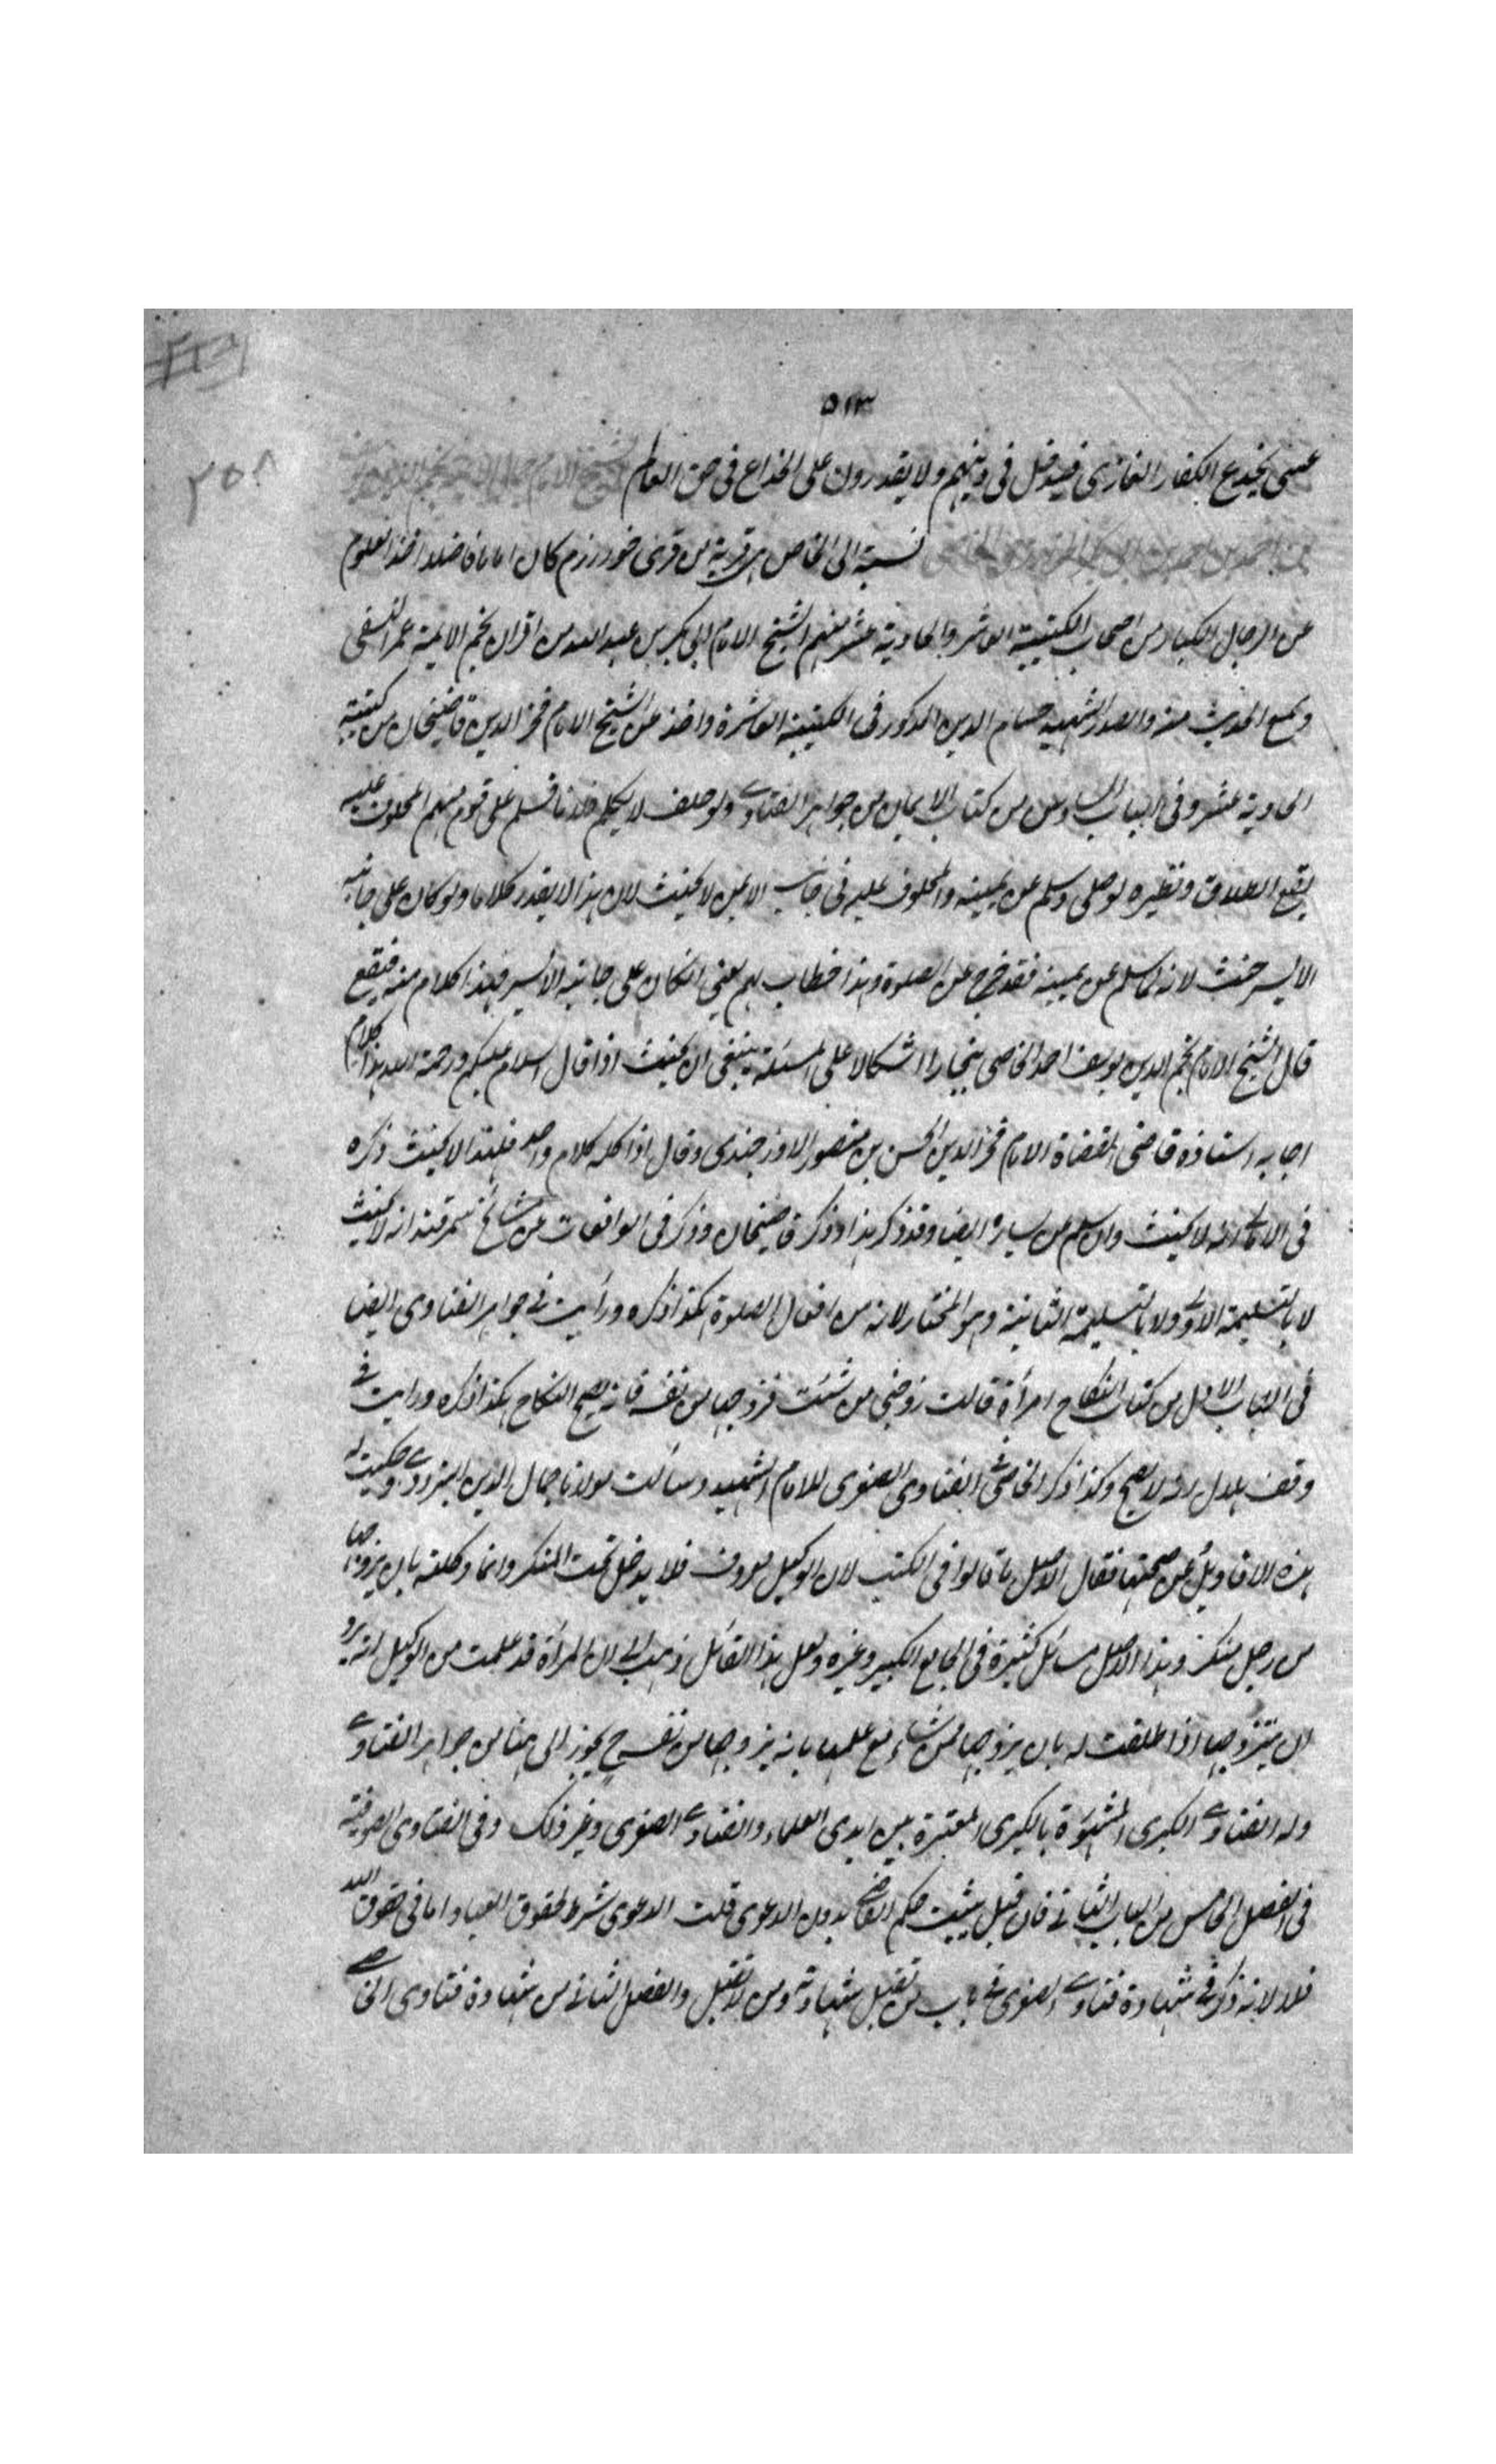 ٥١٣
٢٥٨
عسى يخدع الكفار الغازى فيدخل فى دينهم ولا يقدرون على الخداع فى حق العالم الشيخ الامام جمال الائمة نجم الدين يوسف
بن احمد بن ابى بكر الخوارزمى الخاصى نسبة الى الخاص هى قرية من قرى خوارزم كان اماما فاضلا اخذ العلوم
عن الرجال الكبار من اصحاب الكتيبة العاشر والحادية عشر منهم الشيخ الامام ابى بكر بن عبد الله من اقران نجم الائمة عمر النسفى
وسمع الحديث منه والصدر الشهيد حسام الدين المذكور فى الكتيبة العاشرة واخذ عن الشيخ الامام فخر الدين قاضيخان من كتيبة
الحادية عشر وفى الباب السادس من كتاب الايمان من جواهر الفتاوى ولو حلف لا يكلم فلانا فسلم على قوم فيهم المحلوف عليه
يقع الطلاق ونظيره لو صلى وسلم عن يمينه والمحلوف عليه فى جانب الايمن لا يحنث لان هذا لا يقدر كلاما ولو كان على جانبه
الايسر حنث لانه لما سلم عن يمينه فقد خرج عن الصلوة وهذا خطاب لهم يعنى ان كان على جانبه الايسر فهذا كلام منه فيقع
قال الشيخ الامام نجم الدين يوسف احمد الخاصى ببخارا اشكالا على المسئلة ينبغى ان يحنث اذا قال السلام عليكم ورحمة الله هذا كلام
اجابه استاذه قاضى القضاة الامام فخر الدين الحسن بن منصور الاوزجندى وقال اذا كله كلام واحد فلهذا لا يحنث ذكره
فى الامالى انه لا يحنث وان سلم من يساره ايضا وقد ذكر هذا وذكر قاضيخان وذكر فى الواقعات من مشائخ سمرقند انه لا يحنث
لا بالتسليمة الاولى ولا بالتسليمة الثانية وهو المختار لانه من افعال الصلوة هكذا ذكره ورأيت فى جواهر الفتاوى ايضا
فى الباب الاول من كتاب النكاح امرأة قالت زوجنى من شئت فزوجها من نفسه فانه يصح النكاح هكذا ذكره ورايت فى
وقف هلال انه لا يصح وكذا ذكر الخاصى الفتاوى الصغرى للامام الشهيد وسألت مولانا جمال الدين البزدوى وحكيت له
هذه الاقاويل عن صحتها فقال الاصل ما قالوا فى الكتب لان الوكيل معروف فلا يدخل تحت المنكر وانما وكلته بان يزوجها
من رجل منكر وهذا الاصل مسائل كثيرة فى الجامع الكبير وغيره ولعل هذا القائل ذهب الى ان المرأة قد علمت من الوكيل انه يريد
ان يتزوجها اذا اطلقت له بان يزوجها ممن شاء مع علمها بانه يزوجها من نفسه ح يجوز الى هنا من جواهر الفتاوى
وله الفتاوى الكبرى المشهورة بالكبرى المعتبرة بين ايدى العلماء والفتاوى الصغرى وغير ذلك وفى الفتاوى الصوفية
فى الفصل الخامس من الباب الثانى فان قيل يثبت حكم القاضى بدون الدعوى قلت الدعوى شرط لحقوق العباد اما فى حقوق الله
فلا لانه ذكر فى شهادة فتاوى الصغرى فى باب من تقبل شهادته ومن لا تقبل والفصل الثانى من شهادة فتاوى الخاصى